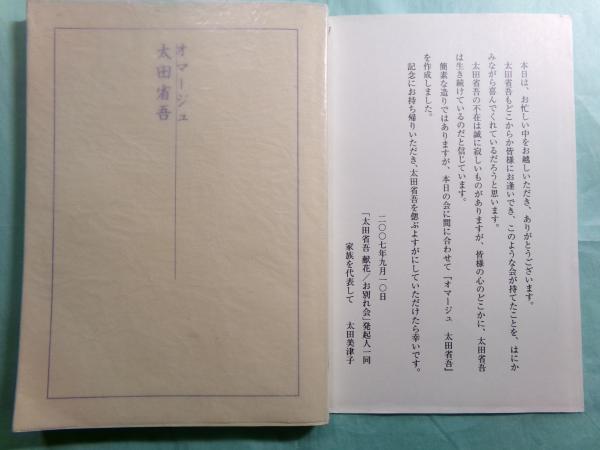 オマージュ
太田省吾
本日は、お忙しい中をお越しいただき、ありがとうございます。
太田省吾もどこからか皆様にお逢いでき、このような会が持てたことを、はにか
みながら喜んでくれているだろうと思います。
太田省吾の不在は誠に寂しいものがありますが、皆様の心のどこかに、太田省吾
は生き続けているのだと信じています。
簡素な造りではありますが、本日の会に間に合わせて「オマージュ 太田省吾」
を作成しました。
記念にお持ち帰りいただき、太田省吾を偲ぶよすがにしていただけたら幸いです。
二〇〇七年九月一〇日
「太田省吾 献花/お別れ会」発起人一同
家族を代表して 太田美津子